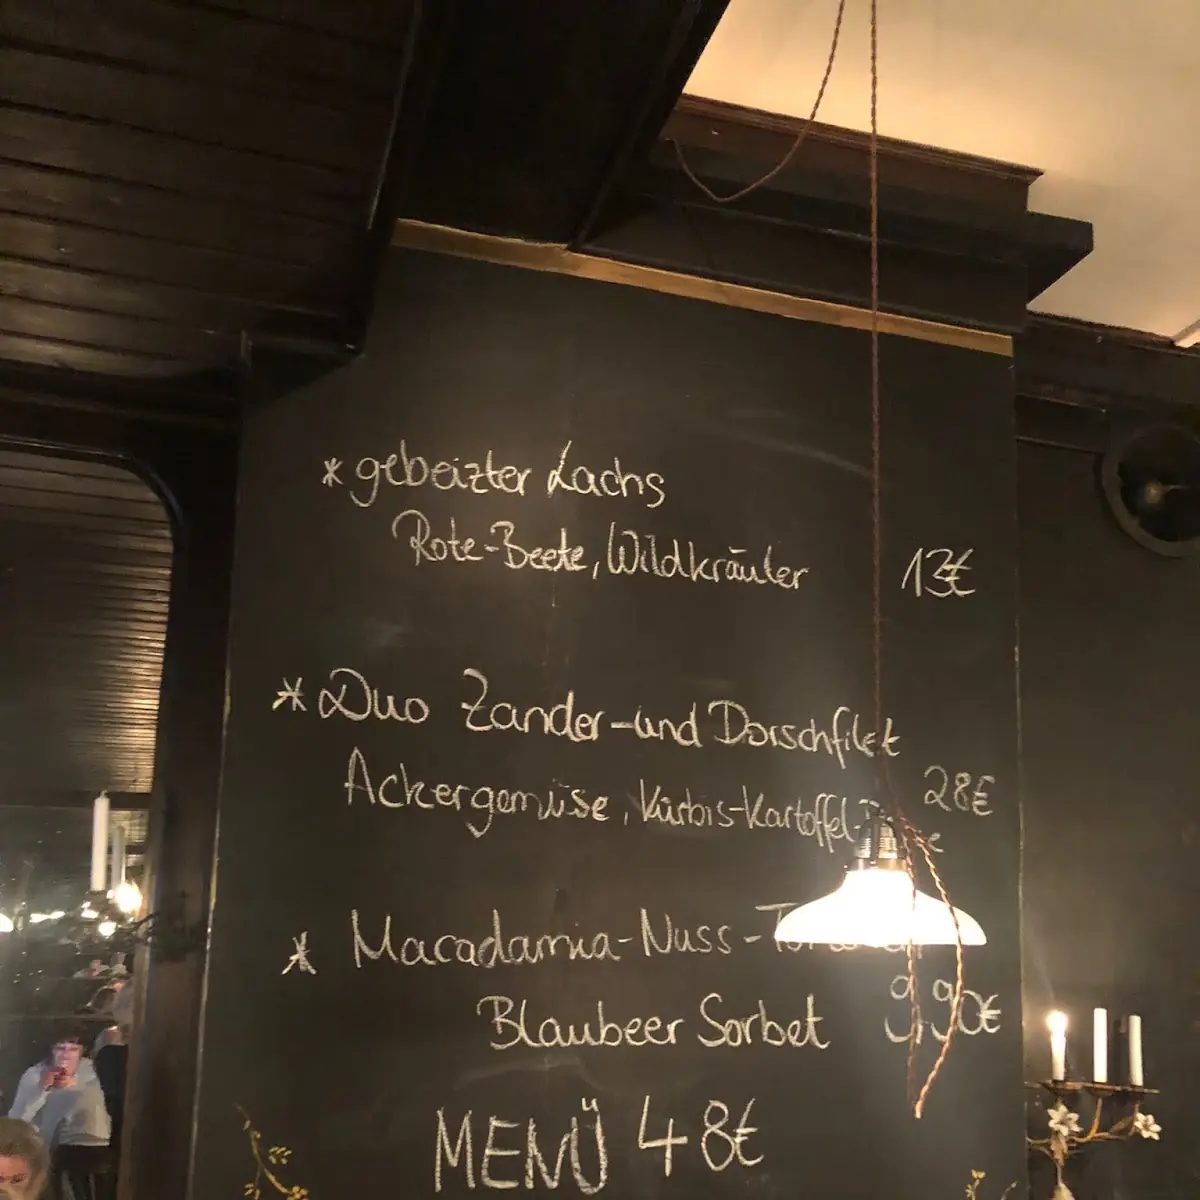 * gebeizter Lachs
Rote-Beete, Wildkräuter 13€
* Duo Zander-und Dorschfilet
Ackergemüse, Kürbis-Kartoffel- 28€
* Macadamia-Nuss-
Blaubeer Sorbet 9,90€
MENÜ 48€